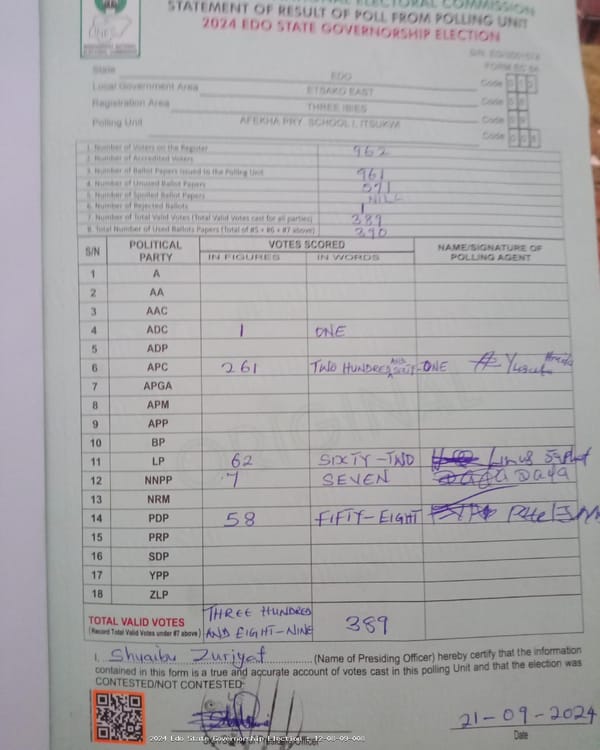 ELECTORAL COMMISSION
STATEMENT OF RESULT OF POLL FROM POLLING UNIT
2024 EDO STATE GOVERNORSHIP ELECTION
FORM EC 8A
State EDO Code
Local Government Area ETSAKO EAST Code
Registration Area THREE IBIES Code
Polling Unit AFEKHA PRY. SCHOOL I, ITSUKWI Code
1. Number of Voters on the Register 962
2. Number of Accredited Voters
3. Number of Ballot Papers issued to the Polling Unit 961
4. Number of Unused Ballot Papers 571
5. Number of Spoiled Ballot Papers NILL
6. Number of Rejected Ballots 1
7. Number of Total Valid Votes (Total Valid Votes cast for all parties) 389
8. Total Number of Used Ballots Papers (Total of #5 + #6 + #7 above) 390
S/N POLITICAL PARTY VOTES SCORED NAME/SIGNATURE OF POLLING AGENT
IN FIGURES IN WORDS
1 A
2 AA
3 AAC
4 ADC 1 ONE
5 ADP
6 APC 261 TWO HUNDRED AND SIXTY-ONE
7 APGA
8 APM
9 APP
10 BP
11 LP 62 SIXTY-TWO Linus
12 NNPP 7 SEVEN
13 NRM
14 PDP 58 FIFTY-EIGHT
15 PRP
16 SDP
17 YPP
18 ZLP
TOTAL VALID VOTES THREE HUNDRED AND EIGHT-NINE 389
(Record Total Valid Votes under #7 above)
I, Shuaibu Zuriyat (Name of Presiding Officer) hereby certify that the information
contained in this form is a true and accurate account of votes cast in this polling Unit and that the election was
CONTESTED/NOT CONTESTED.
21-09-2024
Date
2024 Edo State Governorship Election : 12-08-09-008